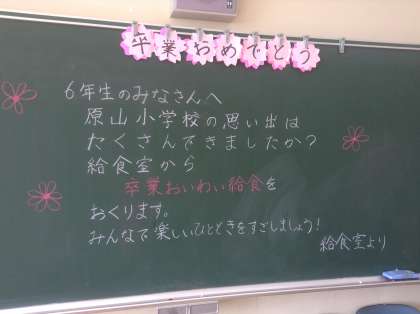 卒業おめでとう
6年生のみなさんへ
原山小学校の思い出は
たくさんできましたか?
給食室から
卒業おいわい給食を
おくります。
みんなで楽しいひとときをすごしましょう!
給食室より